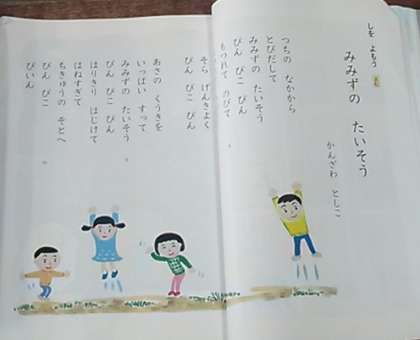 しを よもう
みみずの たいそう
かんざわ としこ
つちの なかから
とびだして
みみずの たいそう
ぴん ぴこ ぴん
もつれて のびて
ぴん ぴこ ぴん
そら げんきよく
あさの くうきを
いっぱい すって
みみずの たいそう
ぴん ぴこ ぴん
はりきり はじけて
はねすぎて
ちきゅうの そとへ
ぴん ぴこ
ぴいん